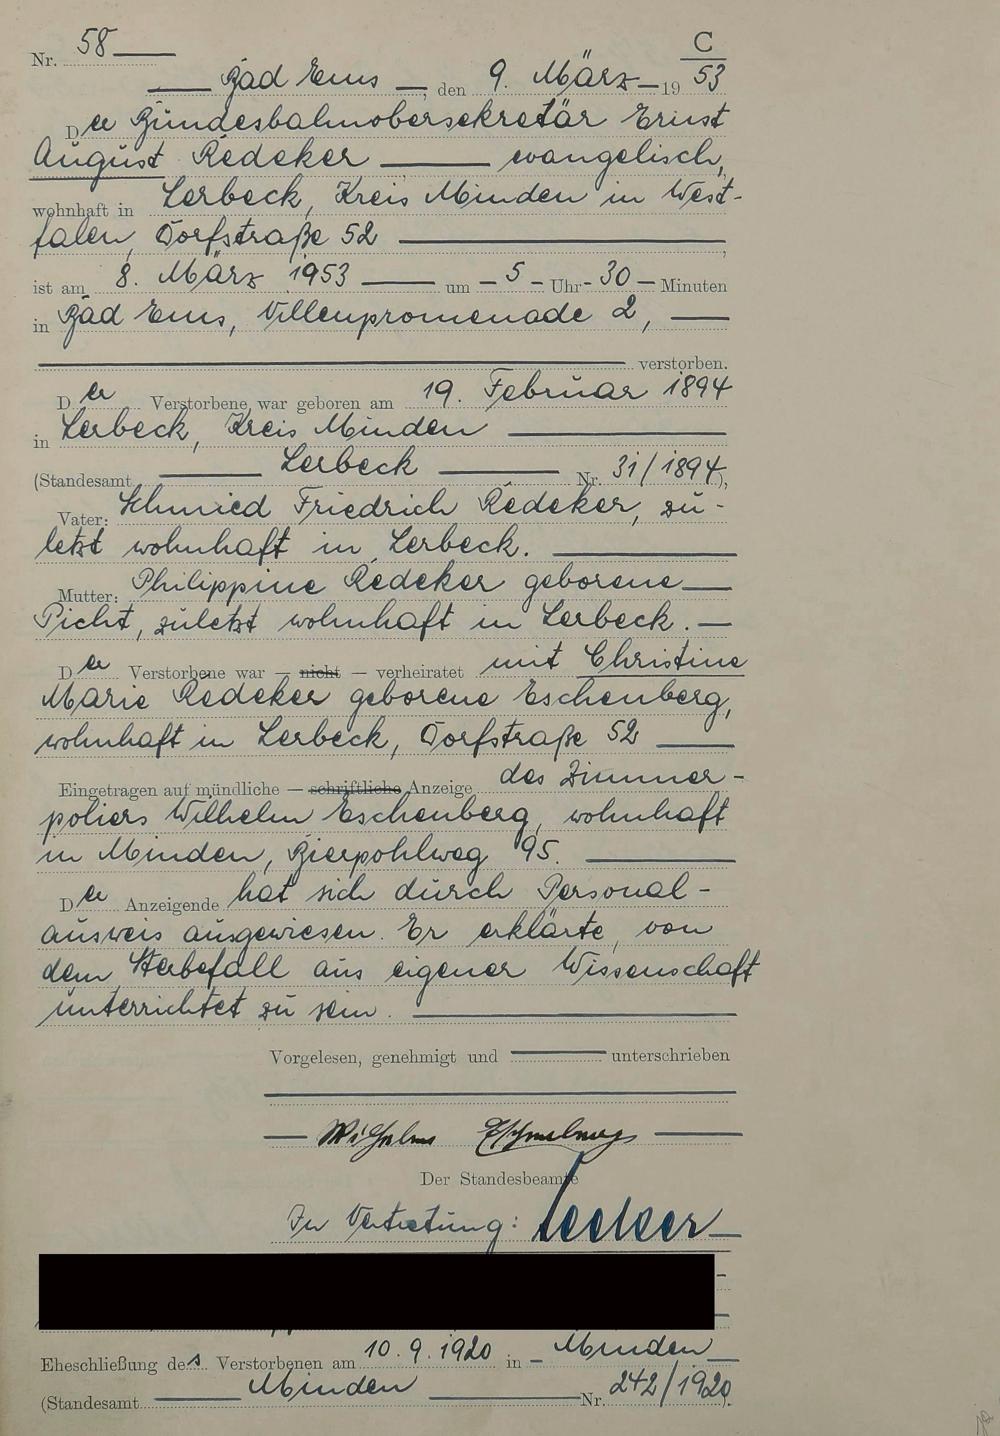 C
Nr. 58
Bad Ems, den 9. März 1953
Der Bundesbahnobersekretär Ernst
August Redeker evangelisch,
wohnhaft in Lerbeck, Kreis Minden in West-
falen, Dorfstraße 52,
ist am 8. März 1953 um - 5 - Uhr - 30 - Minuten
in Bad Ems, Villenpromenade 2,
verstorben.
Der Verstorbene war geboren am 19. Februar 1894
in Lerbeck, Kreis Minden
(Standesamt Lerbeck Nr. 31/1894),
Vater: Schmied Friedrich Redeker, zu-
letzt wohnhaft in Lerbeck.
Mutter: Philippine Redeker geborene
Picht, zuletzt wohnhaft in Lerbeck.
Der Verstorbene war — nicht — verheiratet mit Christine
Marie Redeker geborene Eschenberg,
wohnhaft in Lerbeck, Dorfstraße 52
Eingetragen auf mündliche — schriftliche Anzeige des Zimmer-
poliers Wilhelm Eschenberg, wohnhaft
in Minden, Bierpohlweg 95.
Der Anzeigende hat sich durch Personal-
ausweis ausgewiesen. Er erklärte, von
dem Sterbefall aus eigener Wissenschaft
unterrichtet zu sein.
Vorgelesen, genehmigt und unterschrieben
Wilhelm Eschenberg
Der Standesbeamte
In Vertretung:
Eheschließung des Verstorbenen am 10.9.1920 in - Minden
(Standesamt Minden Nr. 242/1920).